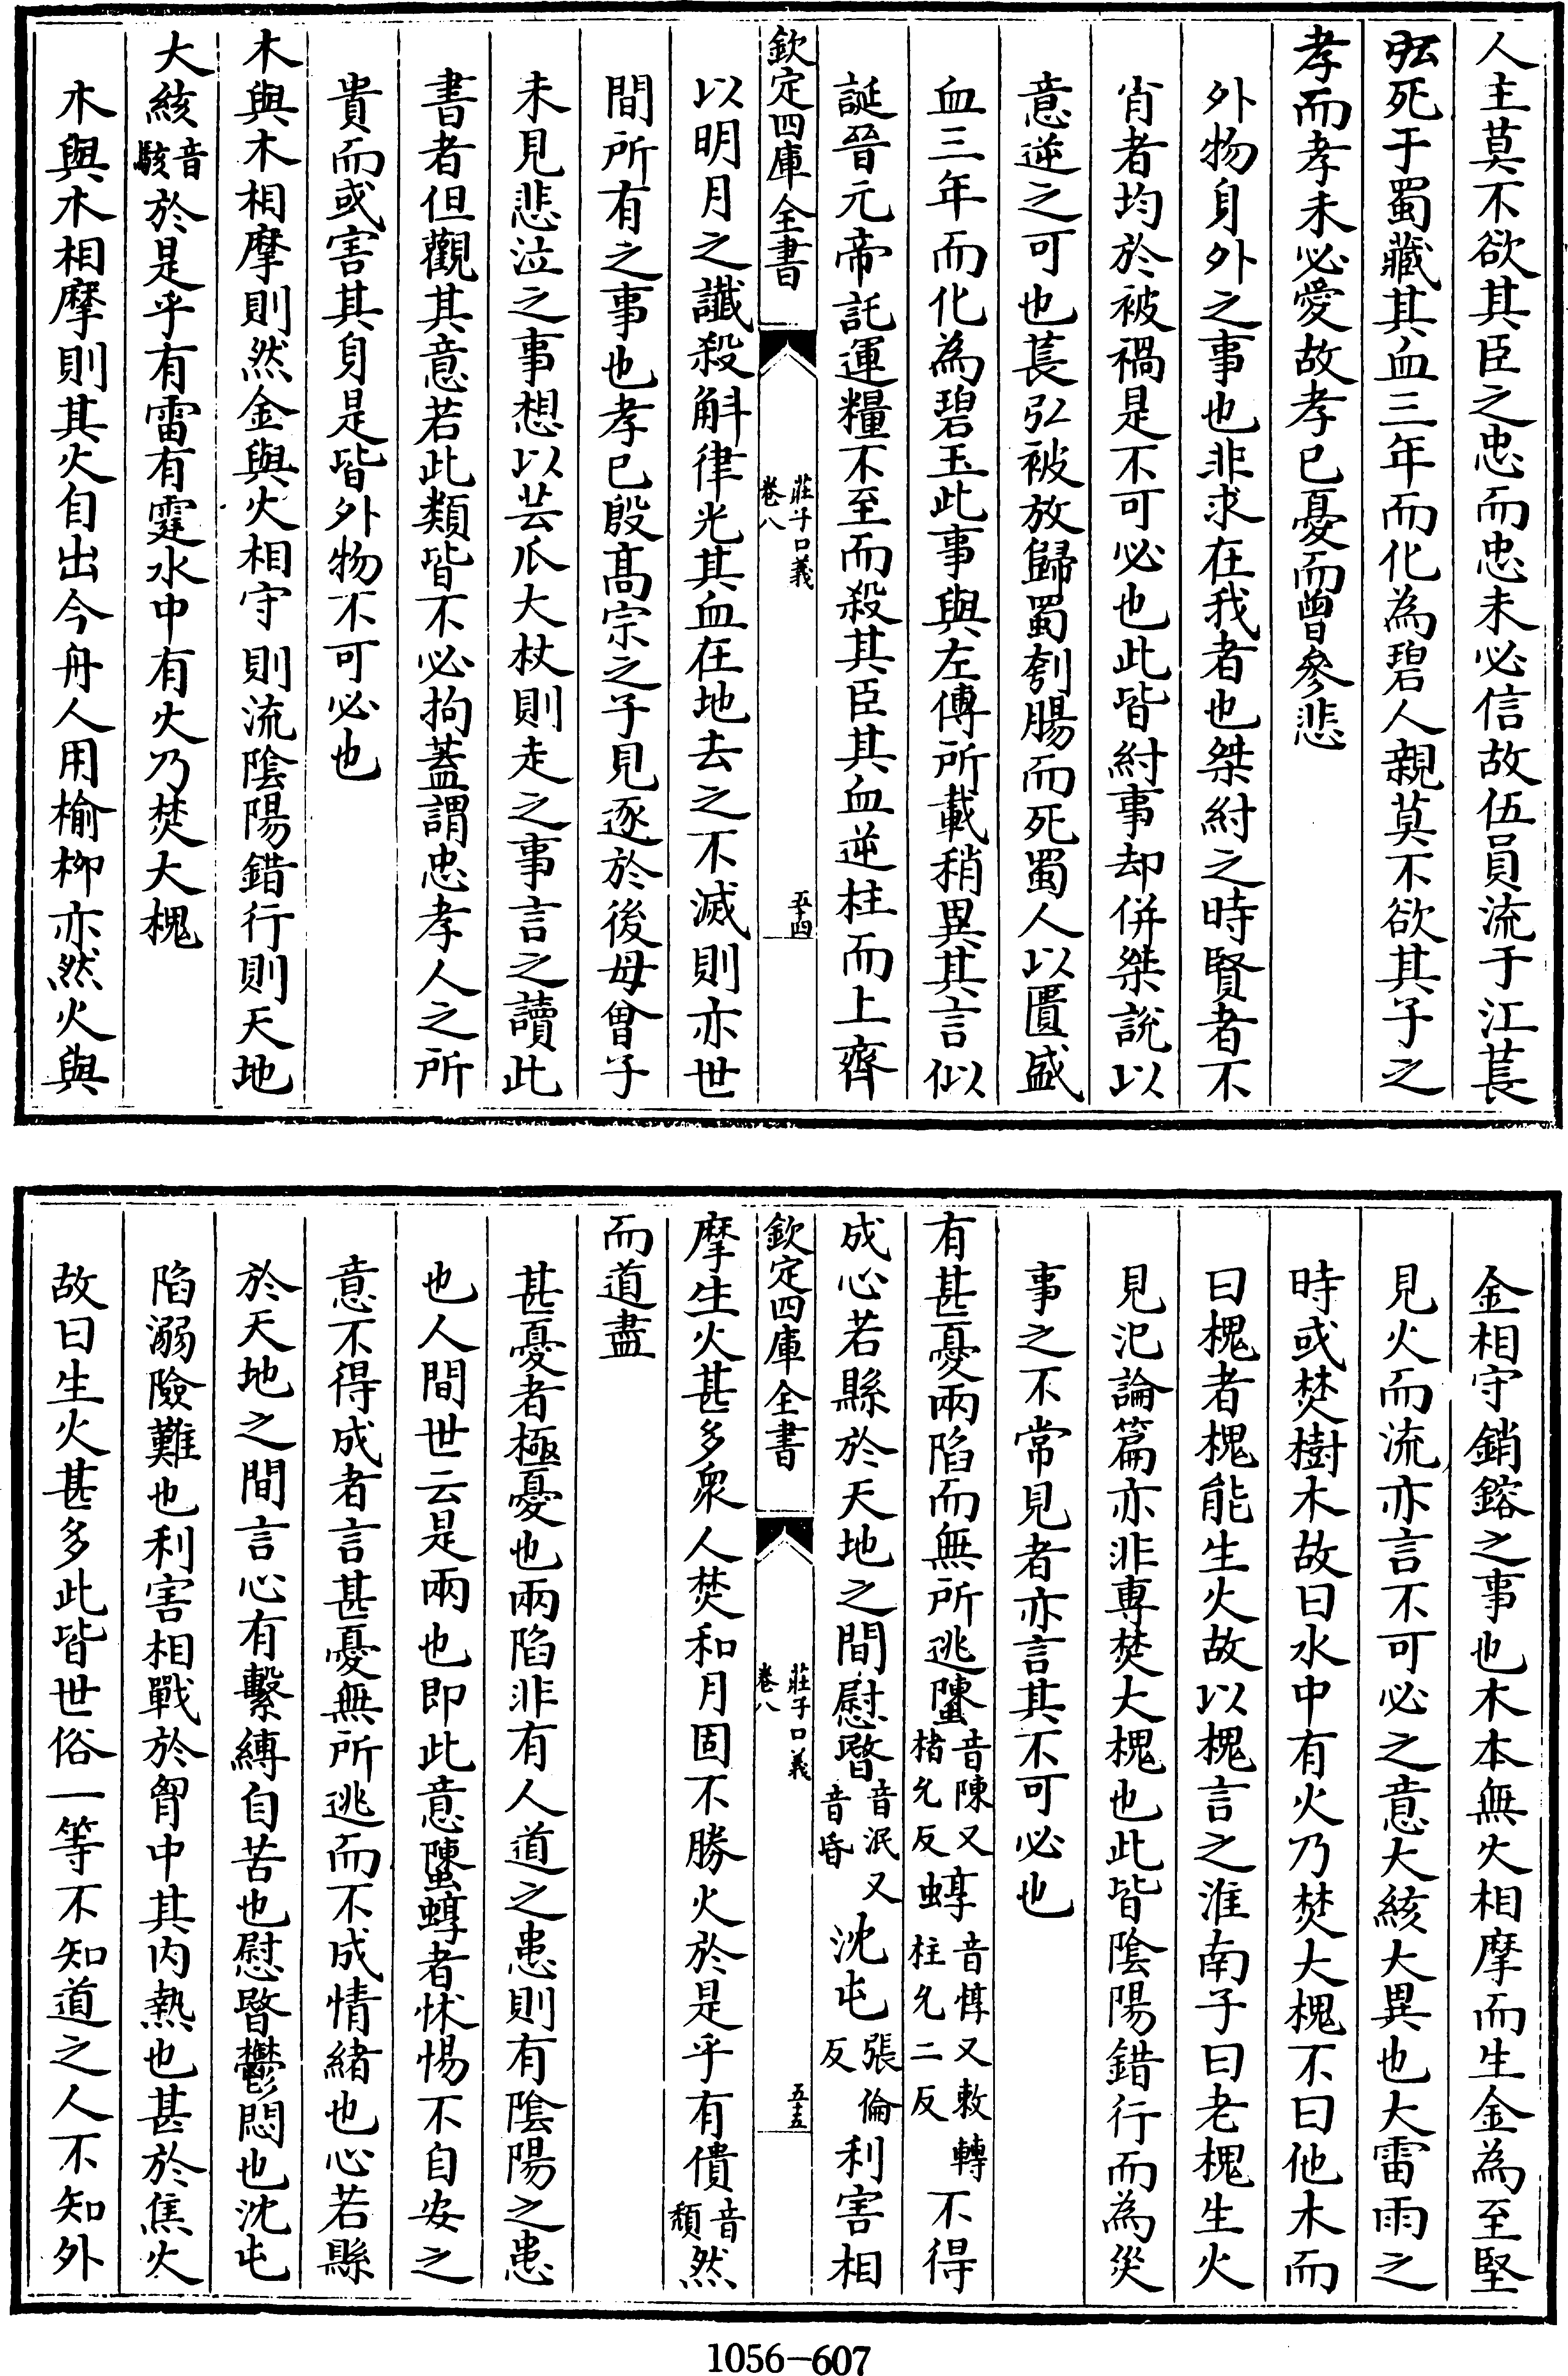 人主莫不欲其臣之忠而忠未必信故伍員流于江萇
弘死于蜀藏其血三年而化為碧人親莫不欲其子之
孝而孝未必愛故孝已憂而曾參悲
外物身外之事也非求在我者也桀紂之時賢者不
肖者均於被禍是不可必也此皆紂事却併桀說以
意逆之可也萇弘被放歸蜀刳腸而死蜀人以匱盛
血三年而化為碧玉此事與左傳所載稍異其言似
誕晉元帝託運糧不至而殺其臣其血逆柱而上齊
欽定四庫全書
莊子口義
卷八
五十四
以明月之讖殺斛律光其血在地去之不滅則亦世
間所有之事也孝已殷高宗之子見逐於後母曾子
未見悲泣之事想以芸爪大杖則走之事言之讀此
書者但觀其意若此類皆不必拘蓋謂忠孝人之所
貴而或害其身是皆外物不可必也
木與木相摩則然金與火相守則流陰陽錯行則天地
大絯音駭於是乎有雷有霆水中有火乃焚大槐
木與木相摩則其火自出今舟人用榆柳亦然火與
金相守銷鎔之事也木本無火相摩而生金為至堅
見火而流亦言不可必之意大絯大異也大雷雨之
時或焚樹木故曰水中有火乃焚大槐不曰他木而
曰槐者槐能生火故以槐言之淮南子曰老槐生火
見氾論篇亦非專焚大槐也此皆陰陽錯行而為災
事之不常見者亦言其不可必也
有甚憂兩陷而無所逃螴音陳又楮允反蜳音惇又敕轉柱允二反不得
成心若縣於天地之間慰暋音泯又音昏沈屯張倫反利害相
欽定四庫全書
莊子口義
卷八
五十五
摩生火甚多衆人焚和月固不勝火於是乎有僓音頽然
而道盡
甚憂者極憂也兩陷非有人道之患則有陰陽之患
也人間世云是兩也即此意螴蜳者怵惕不自安之
意不得成者言甚憂無所逃而不成情緒也心若縣
於天地之間言心有繫縛自苦也慰暋鬱悶也沈屯
陷溺險難也利害相戰於胷中其內熱也甚於焦火
故曰生火甚多此皆世俗一等不知道之人不知外
1056-607